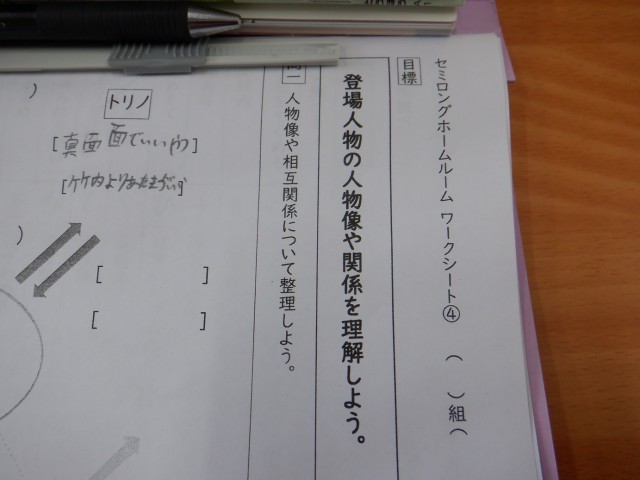 セミロングホームルーム ワークシート④ ( )組(
目標
登場人物の人物像や関係を理解しよう。
問一 人物像や相互関係について整理しよう。
トリノ
[真面面でいいやつ]
[竹内よりあたまがいい]
[ ]
[ ]